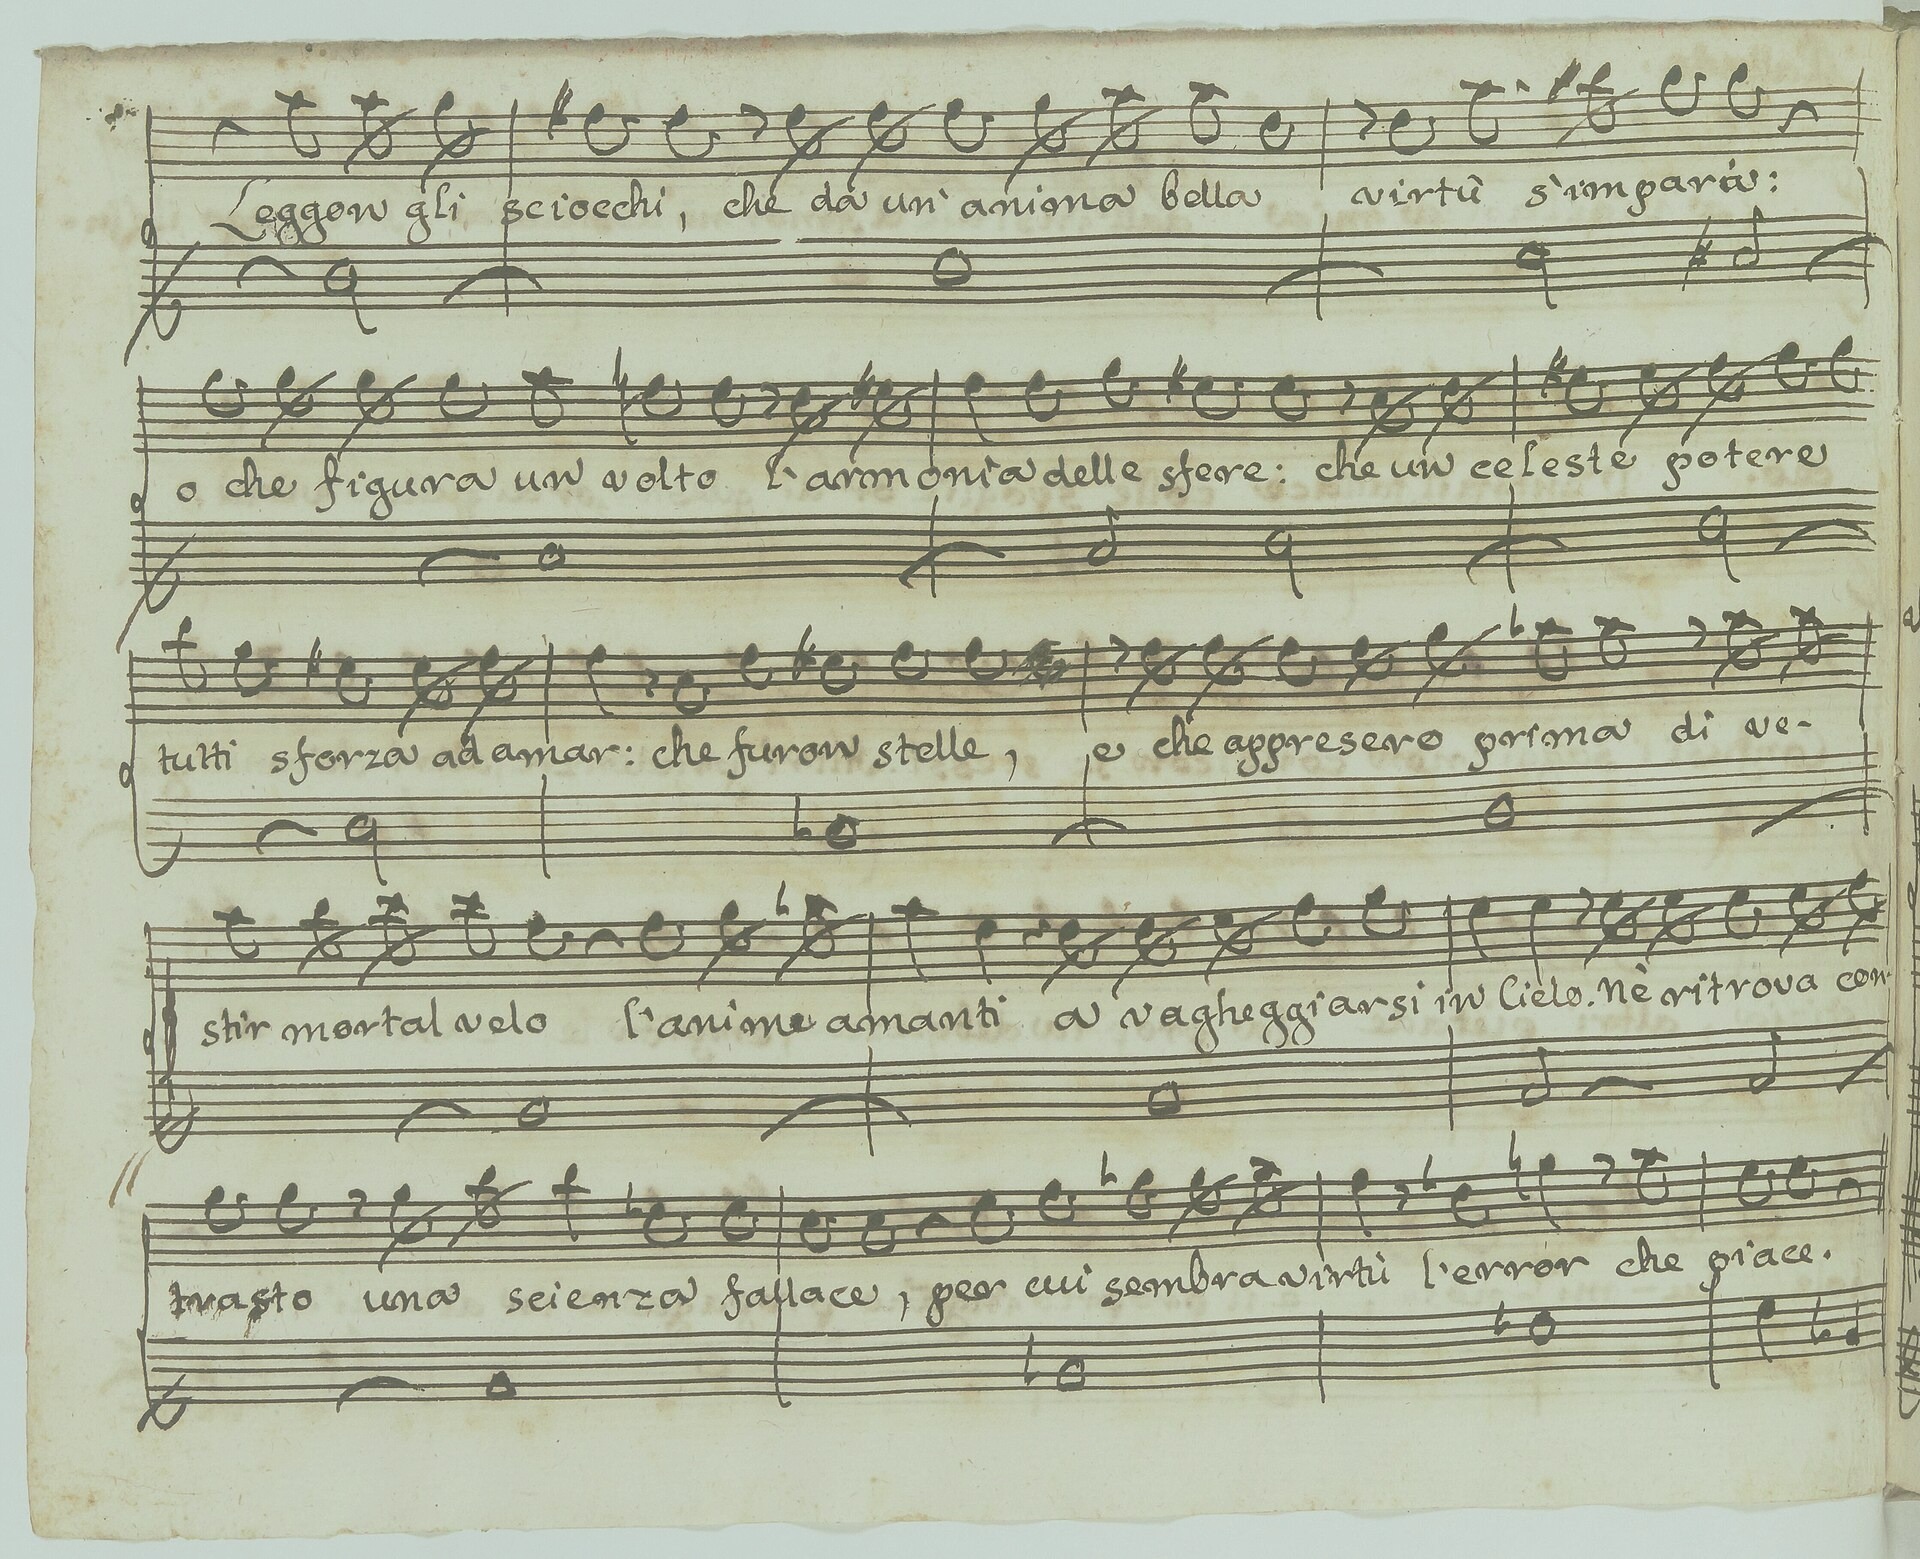 Leggon gli sciocchi, che da un' anima bella virtù s'impara:
o che figura un volto l'armonia delle sfere: che un celeste potere
tutti sforza ad amar: che furon stelle, e che appresero prima di ve-
stir mortal velo l'anime amanti a vagheggiarsi in Cielo. Nè ritrova con-
trasto una scienza fallace, per cui sembra virtù l'error che piace.